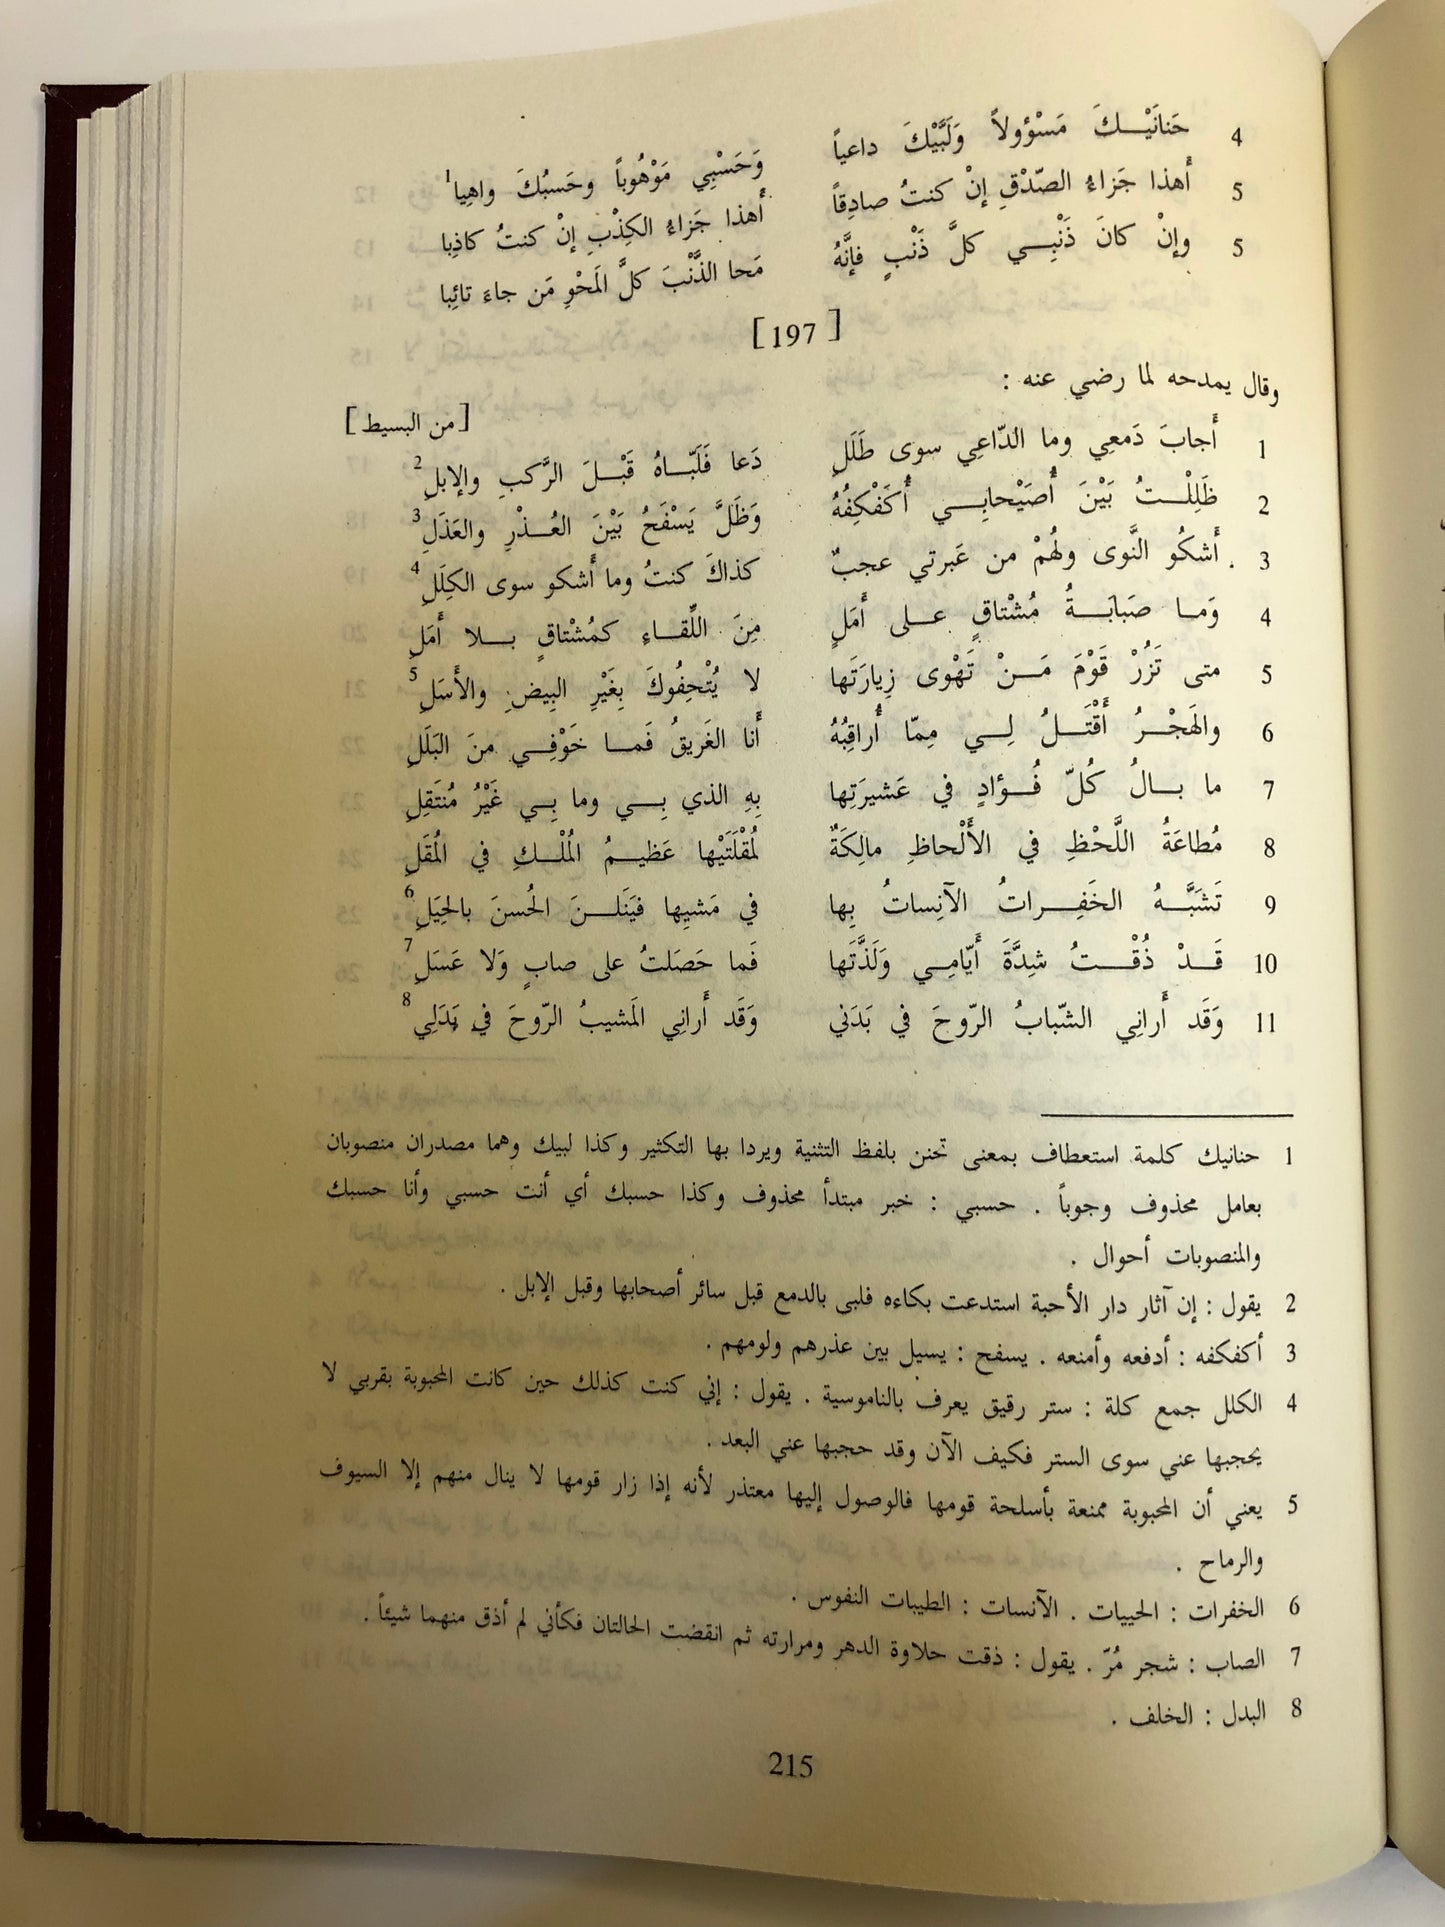 4 حَنانَيْـــكَ مَسْؤولاً وَلَبَّيْكَ داعياً وَحَسْبِي مَوْهُوباً وحَسبُكَ واهِيا1
5 أَهذا جَزاءُ الصّدْقِ إنْ كنتُ صادِقاً أَهذا جَزاءُ الكِذْبِ إنْ كنتُ كاذِبا
5 وإنْ كانَ ذَنْبِـــي كلَّ ذَنْبٍ فإنَّهُ مَحا الذَّنْبَ كلَّ المَحْوِ مَن جاءَ تائِبا
[ 197 ]
وقال يمدحه لما رضي عنه :
[ من البسيط ]
1 أَجابَ دَمعِي وما الدّاعِي سوى طَلَلِ دَعا فَلَبّـــاهُ قَبْـــلَ الرَّكبِ والإبلِ2
2 ظَلِلْـــتُ بَيْنَ أُصَيْحابِـــي أُكَفْكِفُهُ وَظَلَّ يَسْفَحُ بَيْنَ العُـــذْرِ والعَذَلِ3
3 أَشكُو النَّوى ولهُمْ من عَبرتي عجبٌ كذاكَ كنتُ وما أَشكو سوى الكِلَلِ4
4 وَمـــا صَبابَـــةُ مُشْتاقٍ علـــى أَمَلٍ مِنَ اللِّقـــاءِ كمُشْتاقٍ بـــلا أَمَلِ
5 متى تَزُرْ قَوْمَ مَـــنْ تَهْوى زِيارَتَها لا يُتْحِفُوكَ بِغَيْرِ البِيضِ والأَسَلِ5
6 والهَجْـــرُ أَقْتَـــلُ لِـــي مِمّا أُراقِبُهُ أَنا الغَريقُ فَمـــا خَوْفِـــي منَ البَلَلِ
7 ما بـــالُ كُلّ فُـــؤادٍ في عَشيرَتِها بِهِ الذي بِـــي وما بِـــي غَيْرُ مُنتَقِلِ
8 مُطاعَةُ اللَّحْظِ في الأَلْحاظِ مالِكَةٌ لمُقْلَتَيْها عَظيـــمُ المُلْـــكِ في المُقَلِ
9 تَشَبَّـــهُ الخَفِـــراتُ الآنِساتُ بِها في مَشيِها فيَنَلـــنَ الحُسنَ بالحِيَلِ6
10 قَـــدْ ذُقْـــتُ شِدَّةَ أَيّامِـــي وَلَذَّتَها فَما حَصَلتُ على صابٍ وَلا عَسَلِ7
11 وَقَد أَرانِي الشّبابُ الرّوحَ في بَدَني وَقَد أَرانِي المَشيبُ الرّوحَ في بَدَلِي8
1 حنانيك كلمة استعطاف بمعنى تحنن بلفظ التثنية ويردا بها التكثير وكذا لبيك وهما مصدران منصوبان
بعامل محذوف وجوباً . حسبي : خبر مبتدأ محذوف وكذا حسبك أي أنت حسبي وأنا حسبك
والمنصوبات أحوال .
2 يقول : إن آثار دار الأحبة استدعت بكاءه فلبى بالدمع قبل سائر أصحابها وقبل الإبل .
3 أكفكفه : أدفعه وأمنعه . يسفح : يسيل بين عذرهم ولومهم .
4 الكلل جمع كلة : ستر رقيق يعرف بالناموسية . يقول : إني كنت كذلك حين كانت المحبوبة بقربي لا
يحجبها عني سوى الستر فكيف الآن وقد حجبها عني البعد .
5 يعني أن المحبوبة ممنعة بأسلحة قومها فالوصول إليها معتذر لأنه إذا زار قومها لا ينال منهم إلا السيوف
والرماح .
6 الخفرات : الحييات . الآنسات : الطيبات النفوس .
7 الصاب : شجر مُرّ . يقول : ذقت حلاوة الدهر ومرارته ثم انقضت الحالتان فكأني لم أذق منهما شيئاً .
8 البدل : الخلف .
215